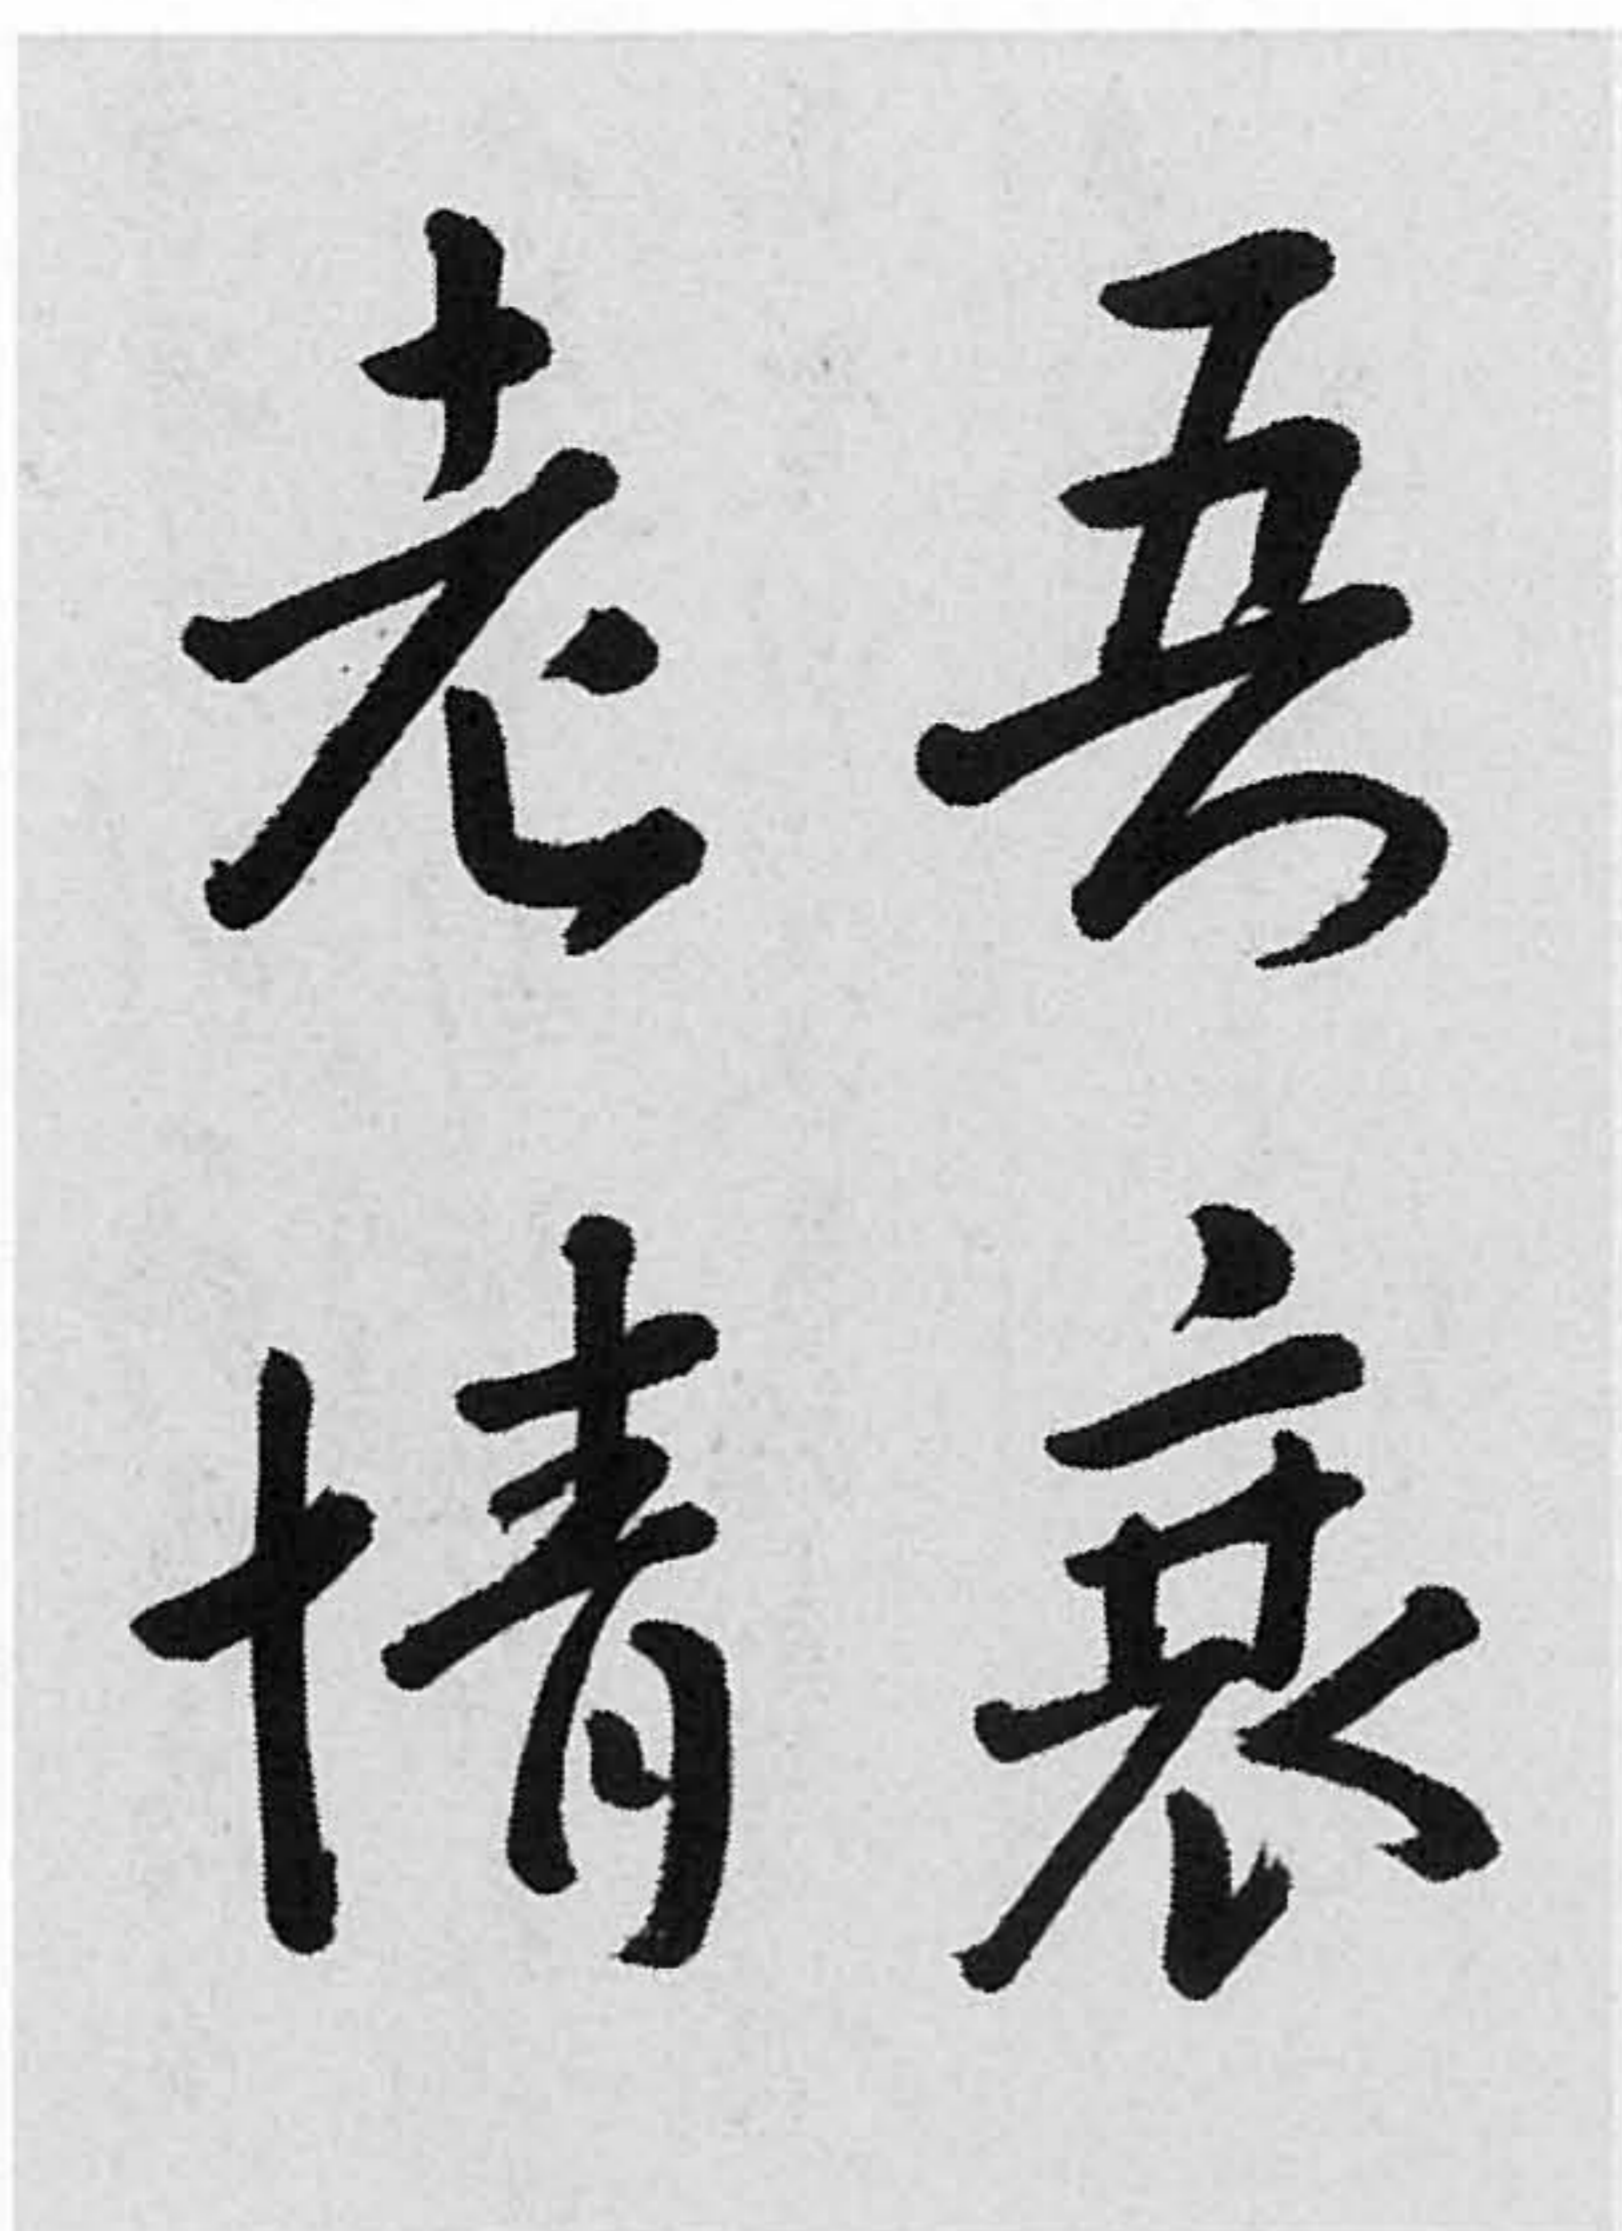 吾衰
老情